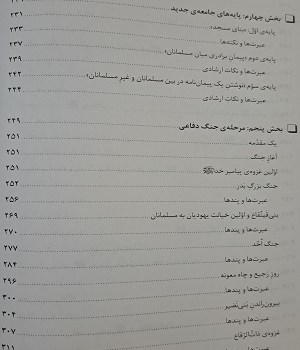 بخش چهارم: پایه‌های جامعه‌ی جدید ........ ۲۳۱
پایه‌ی اوّل: «بنای مسجد» ........ ۲۳۳
عبرت‌ها و نکته‌ها
پایه‌ی دوم «پیمان برادری میان مسلمانان» ........ ۲۳۷
عبرت‌ها و نکات ارشادی ........ ۲۳۹
پایه‌ی سوّم «نوشتن یک پیمان‌نامه در بین مسلمانان و غیر مسلمانان» ........ ۲۴۲
عبرت‌ها و نکات ارشادی ........ ۲۴۴
بخش پنجم: مرحله‌ی جنگ دفاعی ........ ۲۴۹
یک مقدّمه ........ ۲۵۱
آغاز جنگ ........ ۲۵۱
اولین غزوه‌ی پیامبر خدا ﷺ ........ ۲۵۱
جنگ بزرگ بدر ........ ۲۵۲
عبرت‌ها و پندها ........ ۲۵۶
بنی‌قینُقاع و اوّلین خیانت یهودیان به مسلمانان ........ ۲۶۹
عبرت‌ها و پندها ........ ۲۷۰
جنگ اُحُد ........ ۲۷۷
عبرت‌ها و پندها ........ ۲۸۴
روز رَجیع و چاه معونه ........ ۲۹۶
عبرت‌ها و پندها ........ ۳۰۰
بیرون‌راندن بَنی‌نَضیر ........ ۳۰۴
عبرت‌ها و پندها ........ ۳۰۷
غزوه‌ی ذاتُ‌الرِّقاع ........ ۳۱۱